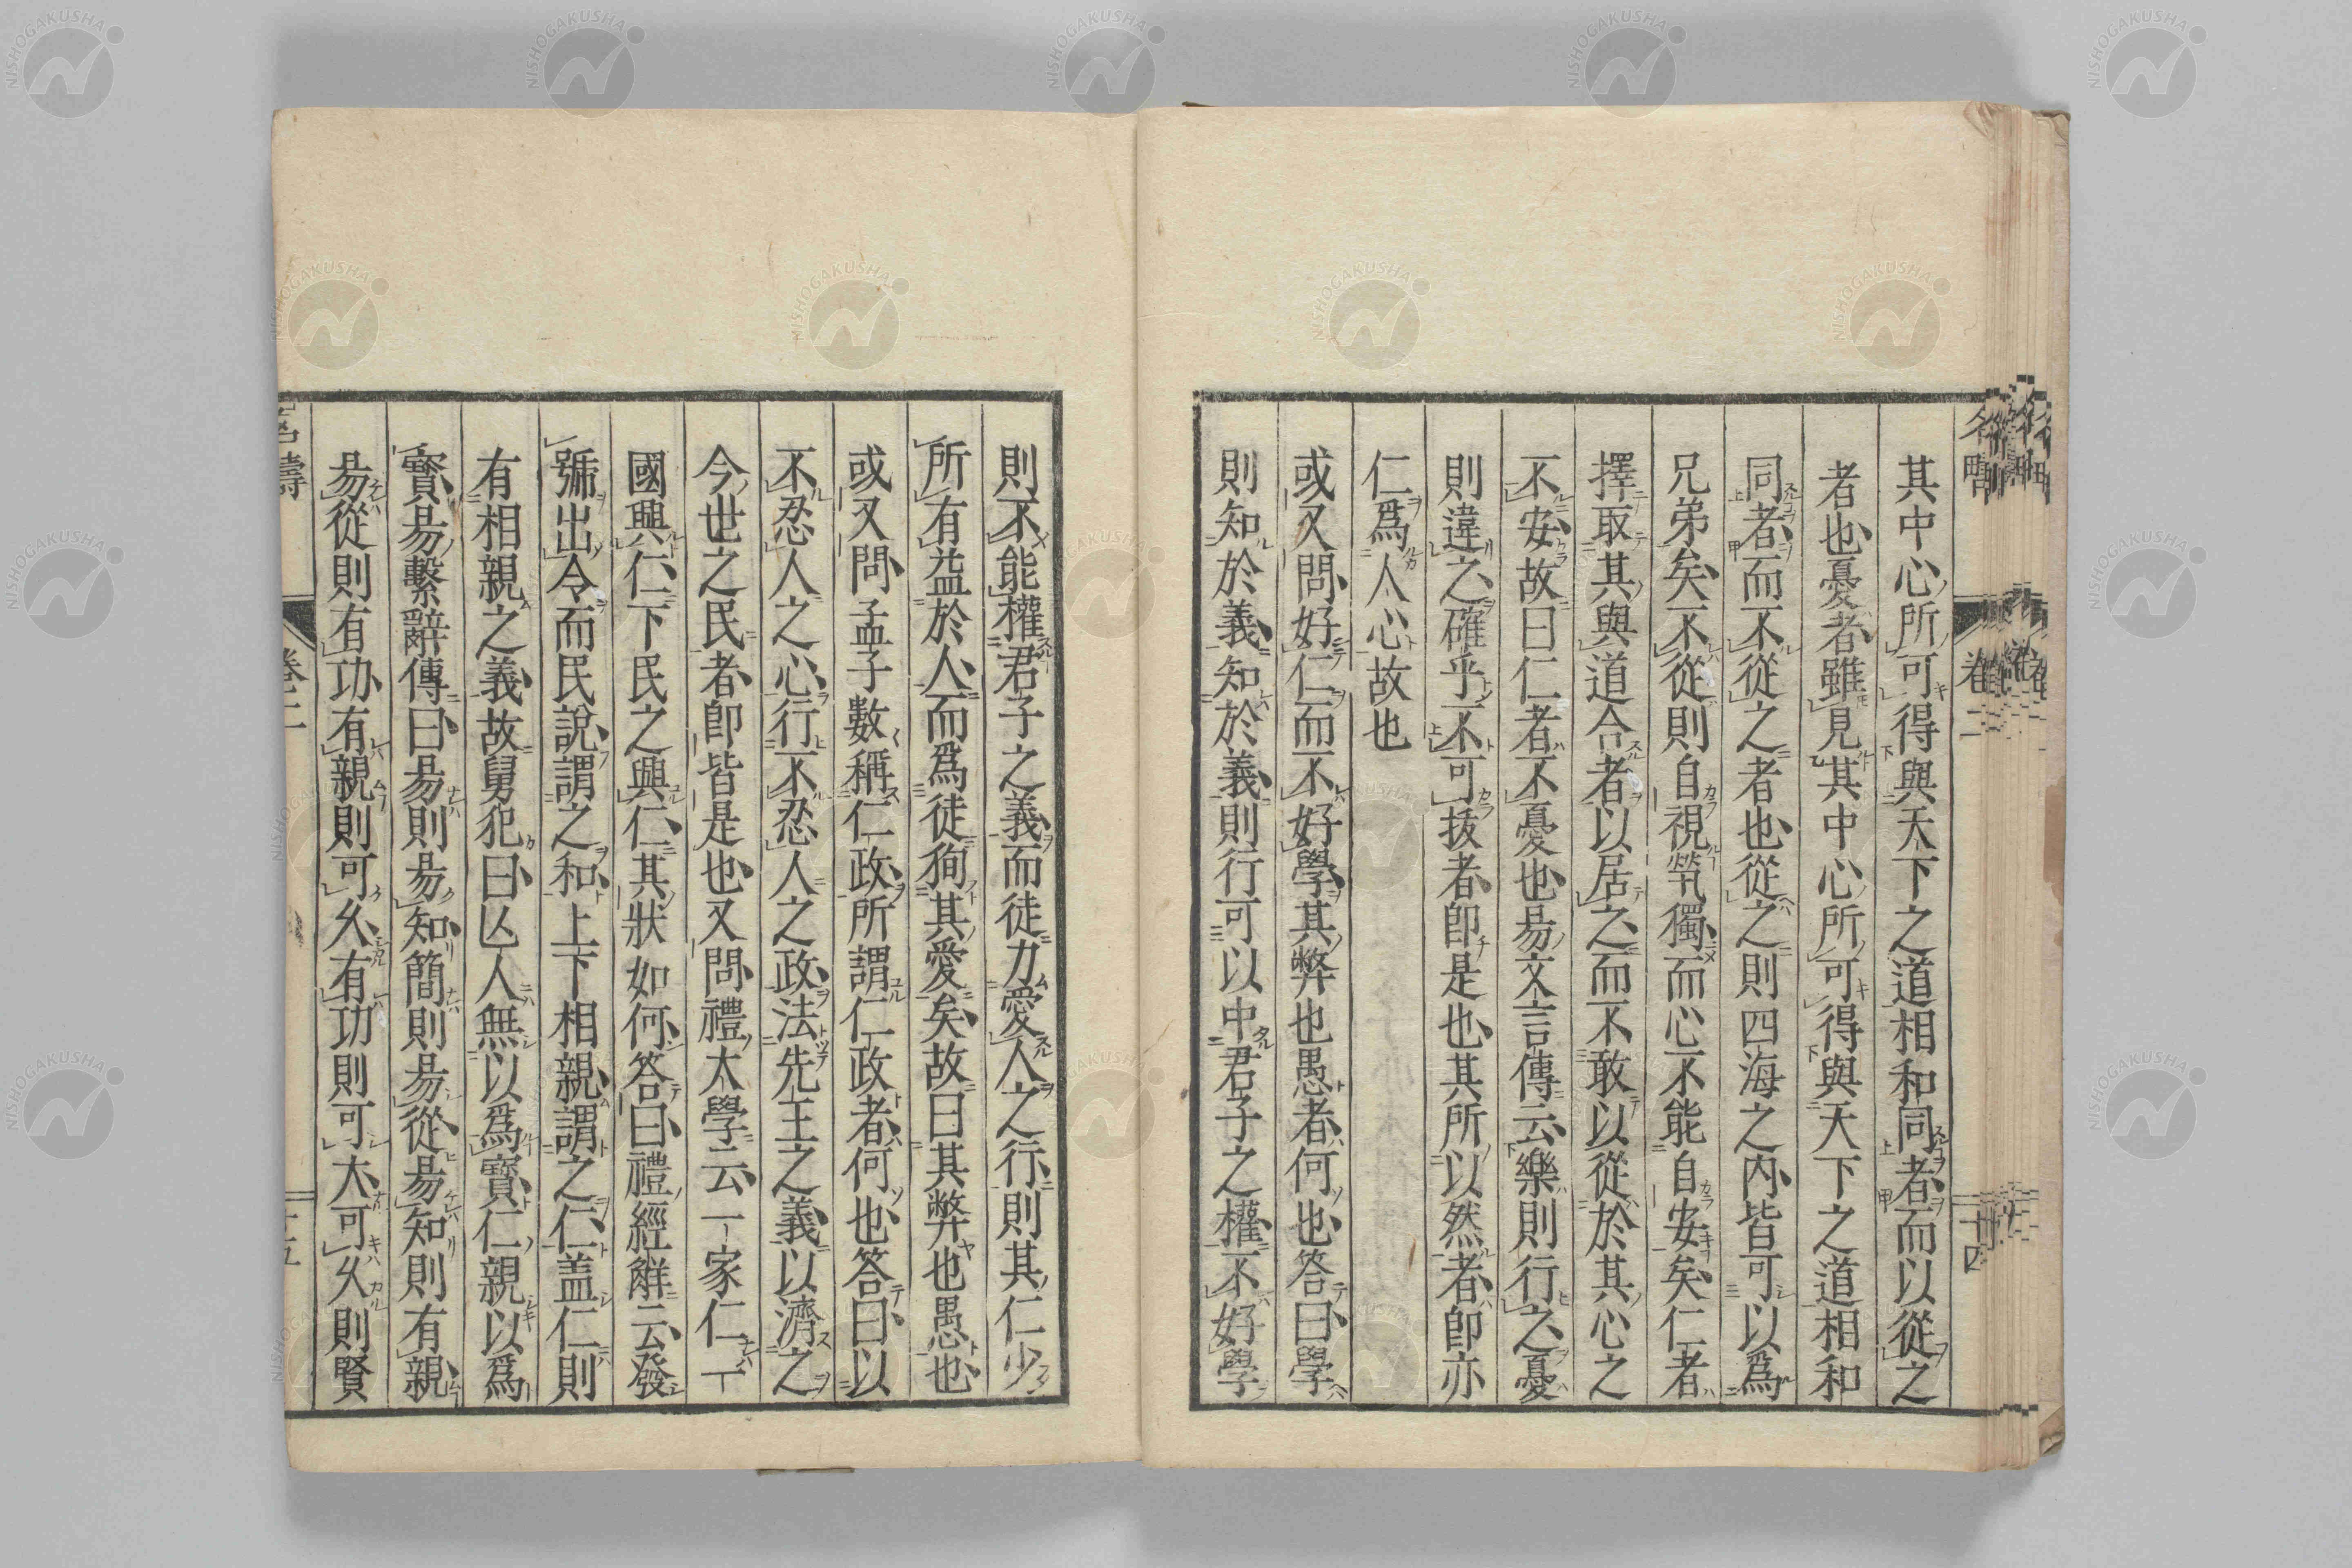 其中心所可得與天下之道相和同者而以從之
者也憂者雖見其中心所可得與天下之道相和
同者而不從之者也從之則四海之内皆可以爲
兄弟矣不從則自視煢獨而心不能自安矣仁者
擇取其與道合者以居之而不敢以從於其心之
不安故曰仁者不憂也易文言傳云樂則行之憂
則違之確乎不可拔者即是也其所以然者即亦
仁爲人心故也
或又問好仁而不好學其弊也愚者何也答曰學
則知於義知於義則行可以中君子之權不好學
則不能權君子之義而徒力愛人之行則其仁少
所有益於人而爲徒狥其愛矣故曰其弊也愚也
或又問孟子數稱仁政所謂仁政者何也答曰以
不忍人之心行不忍人之政法先王之義以濟之
今世之民者即皆是也又問禮大學云一家仁一
國興仁下民之興仁其狀如何答曰禮經解云發
號出令而民說謂之和上下相親謂之仁盖仁則
有相親之義故舅犯曰亾人無以爲寳仁親以爲
寳易繫辭傳曰易則易知簡則易從易知則有親
易從則有功有親則可久有功則可大可久則賢
名疇 卷二 二十四
卷二
NISHOGAKUSHA